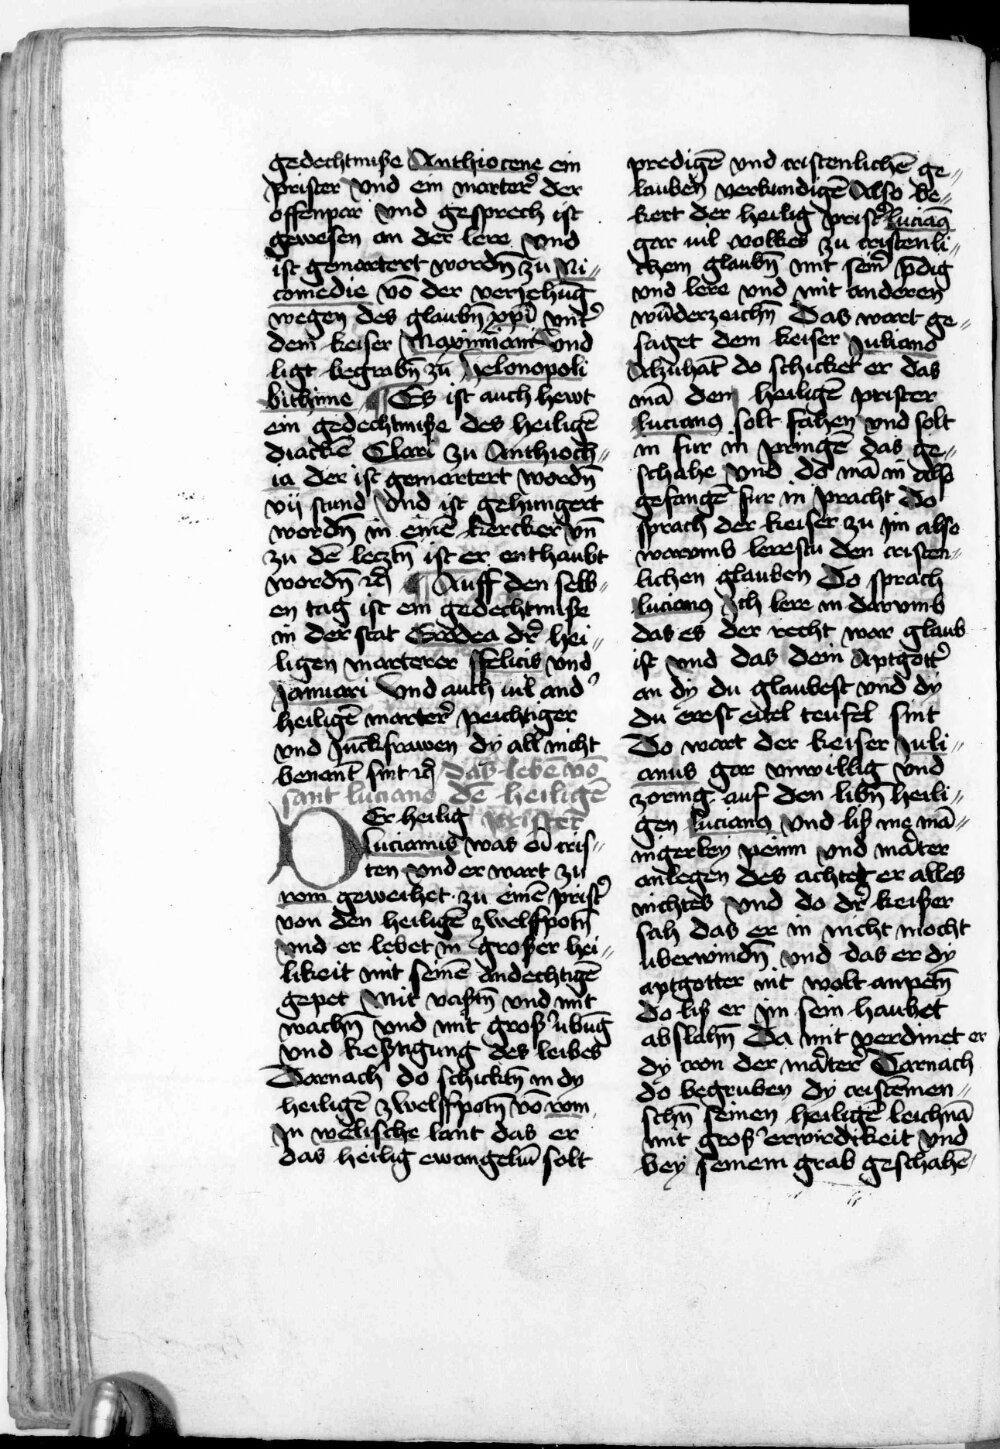 gedechtniße Anthiocene ein
prister vnd ein marter̕ der
offenpar vnd gesprech ist
gewesen an der lere vnd
ist gemartert wordn̄ zu Ni〃
comedie vō der veriehūg
wegen des glaubn̄ xp̄i vnt̕
dem keiser Maximiani vnd
ligt begrabn̄ zū Helonopoli
bithinie ¶ Es ist auch hewt
ein gedechtniße des heiligē
diackē Clari zu Anthioch〃
ia der ist gemartert wordn̄
vij stund vnd ist gehungert
wordn̄ in einē kercker vn̄
zu dē leztn̄ ist er enthaubt
wordn̄ ⁊c̄ ¶ Auff den selb〃
en tag ist ein gedechtniße
in der stat Eradea dr̕ hei〃
ligen marterer ffelicis vnd
Januari vnd auch vil and̕
heiligē marter̕ peichtiger
vnd Junckfrawen dy all nicht
benant̄ sint ⁊c̄ das lebē vō
sant luciano dē heiligē
prister
DEr heilig
lucianus was ei̅ cris〃
ten vnd er wart zu
rom geweihet zu einē prist̕
von den heiligē zwelfpotn̄
vnd er lebet in großer hei〃
likeit mit seinē andechtigē
gepet Mit vastn̄ vnd mit
wachn̄ vnd mit groß̕ vbūg
vnd keßtigung des leibes
Darnach do schicktn̄ in dy
heiligē zwelffpotn̄ vō rom
in welische lant das er
das heilig ewangeliū solt
predigē vnd cristenlichē ge〃
lauben verkundigē Also be〃
kert der heilig prist̕ lucian9
gar vil volkes zu cristenli〃
chem glaubn̄ mit sein̄ p̄dig
vnd lere vnd mit anderen
wūderzeichn̄ Das wart ge〃
saget dem keiser Juliano
do schicket er das
mā den heiligē prister
lucian9 solt fahen vnd solt
in fur in pringē das ge〃
schahe vnd do mā in also
gefangē fur in pracht do
sprach der keiser zu im also
warvmb lerestu den cristen〃
lichen glauben Do sprach
lucian9 Ich lere in darvmb
das es der recht war glaub
ist vnd das dein Aptgott̕
an dy du glaubest vnd dy
du erest eitel teufel sint
Do wart der keiser Juli〃
anus gar vnwillig vnd
zornig auf den libn̄ heili〃
gen lucian9 vnd liß me mā〃
nigerley peinn vnd mater
anlegen des achtet er alles
nichtes vnd do dr̕ keißer
sah das er in nicht mocht
vberwindn̄ vnd das er dy
aptgotter nit wolt anpetn̄
do liß er im sein haubet
abslahn̄ Da mit verdinet er
dy cron der mater̕ Darnach
do begruben dy cristēmen〃
schn̄ seinen heiligē leichnā
mit groß̕ erwirdikeit vnd
bey seinem grab geschahē